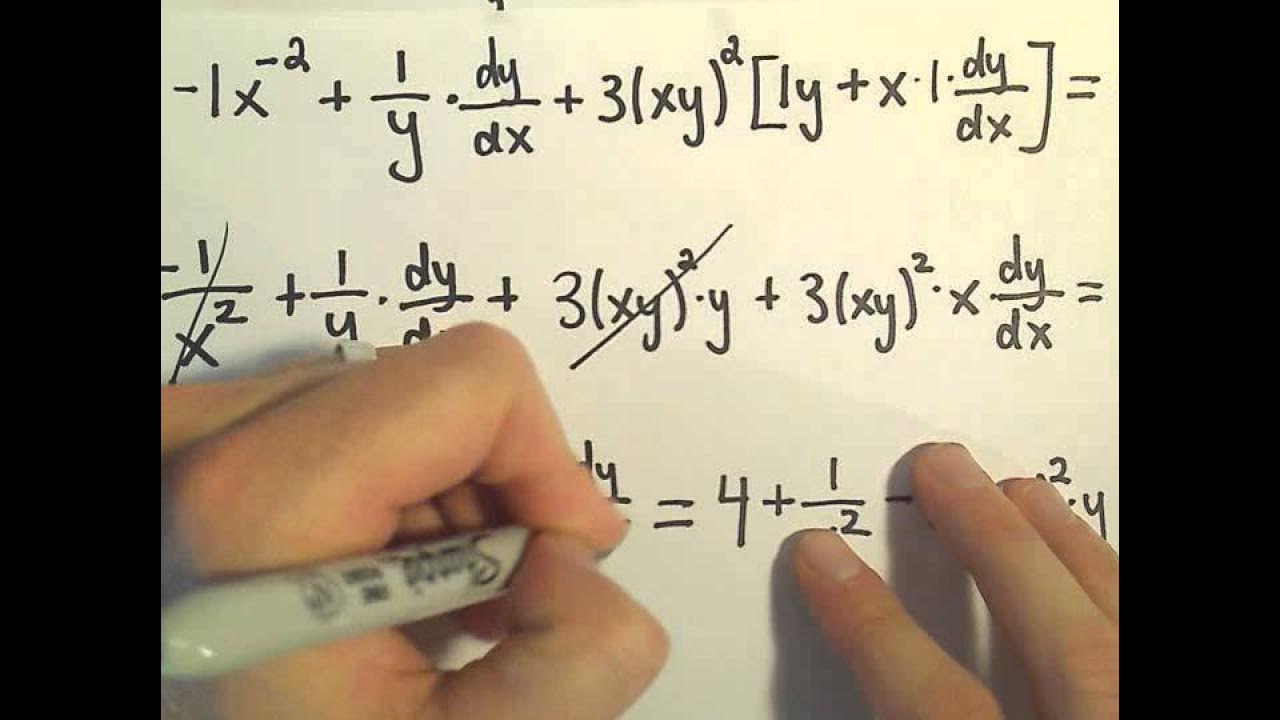 -1x⁻² + 1/y · dy/dx + 3(xy)² [1y + x · 1 · dy/dx] =
-1/x² + 1/y · dy/dx + 3(xy)² · y + 3(xy)² · x · dy/dx =
dy = 4 + 1/ ² - ² · y
Sharpie